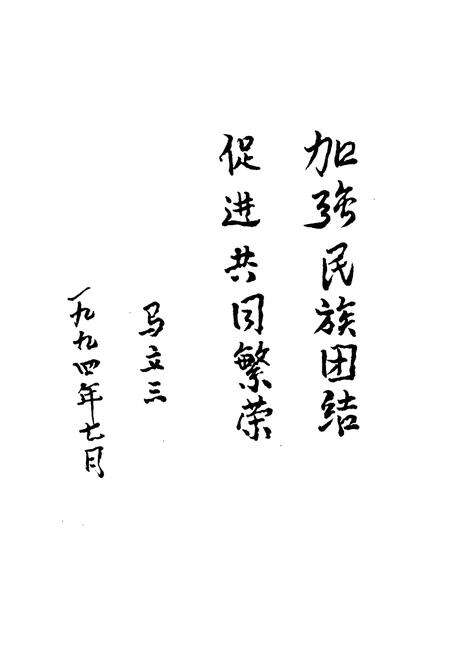 加强民族团结
促进共同繁荣
马立三
一九九四年七月